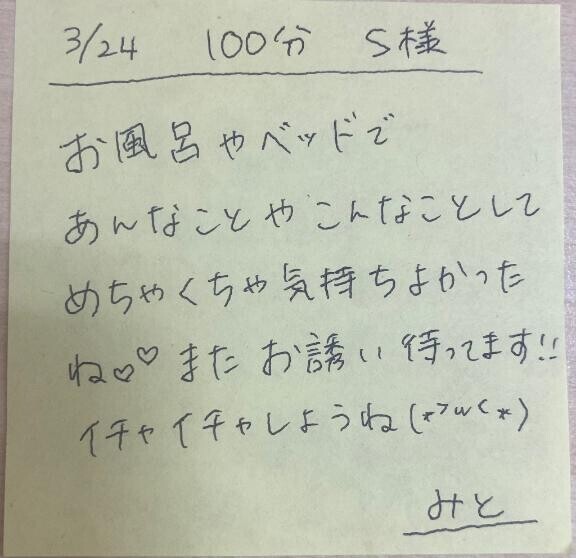 3/24 100分 S様
お風呂やベッドで
あんなことやこんなことして
めちゃくちゃ気持ちよかった
ね♡♡またお誘い待ってます!!
イチャイチャしようね(*>ω<*)
みと